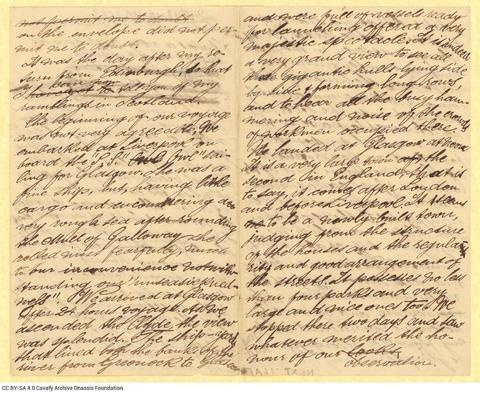 not permit me to doubt
on the envelope did not per-
mit me to doubt.
It was the day after my re-
turn from Edinburgh, so that
to tell you of my
ramblings in Scotland.
The beginning of our voyage
was not very agreeable. We
embarked at Liverpool on
board the "Owl" sai-
ling for Glasgow. She was a
fine ship, but, having little
cargo and encountering a
very rough sea after rounding
the Mull of Galloway she
rolled most fearfully, much
to our inconvenience notwith
standing our "unseasickred
ness". We arrived at Glasgow
after 24 hours voyage. As we
ascended the Clyde, the view
was splendid. The ship-yards
that lined both the banks of the
river from Greenock to Glasgow
and were full of vessels ready
for launching offered a very
majestic spectacle. It is indeed
a very grand view to see all
those gigantic hulls lying side
by side & forming long rows,
and to hear all the busy ham-
mering and noise of the crowds
of workmen occupied there.
We landed at Glasgow at noon.
It is a very large town, the
second in England, that is
to say, it comes after London
and before Liverpool. It seems
to me to be a newly built town,
judging from the structure
of the houses and the regula-
rity and good arrangement of
the streets. It possesses no less
than four parks and very
large and nice ones too. We
stopped there two days and saw
whatever merited the ho-
nour of our looks
observation.
NEXT LEAF
CC BY-SA 4.0 Cavafy Archive Onassis Foundation